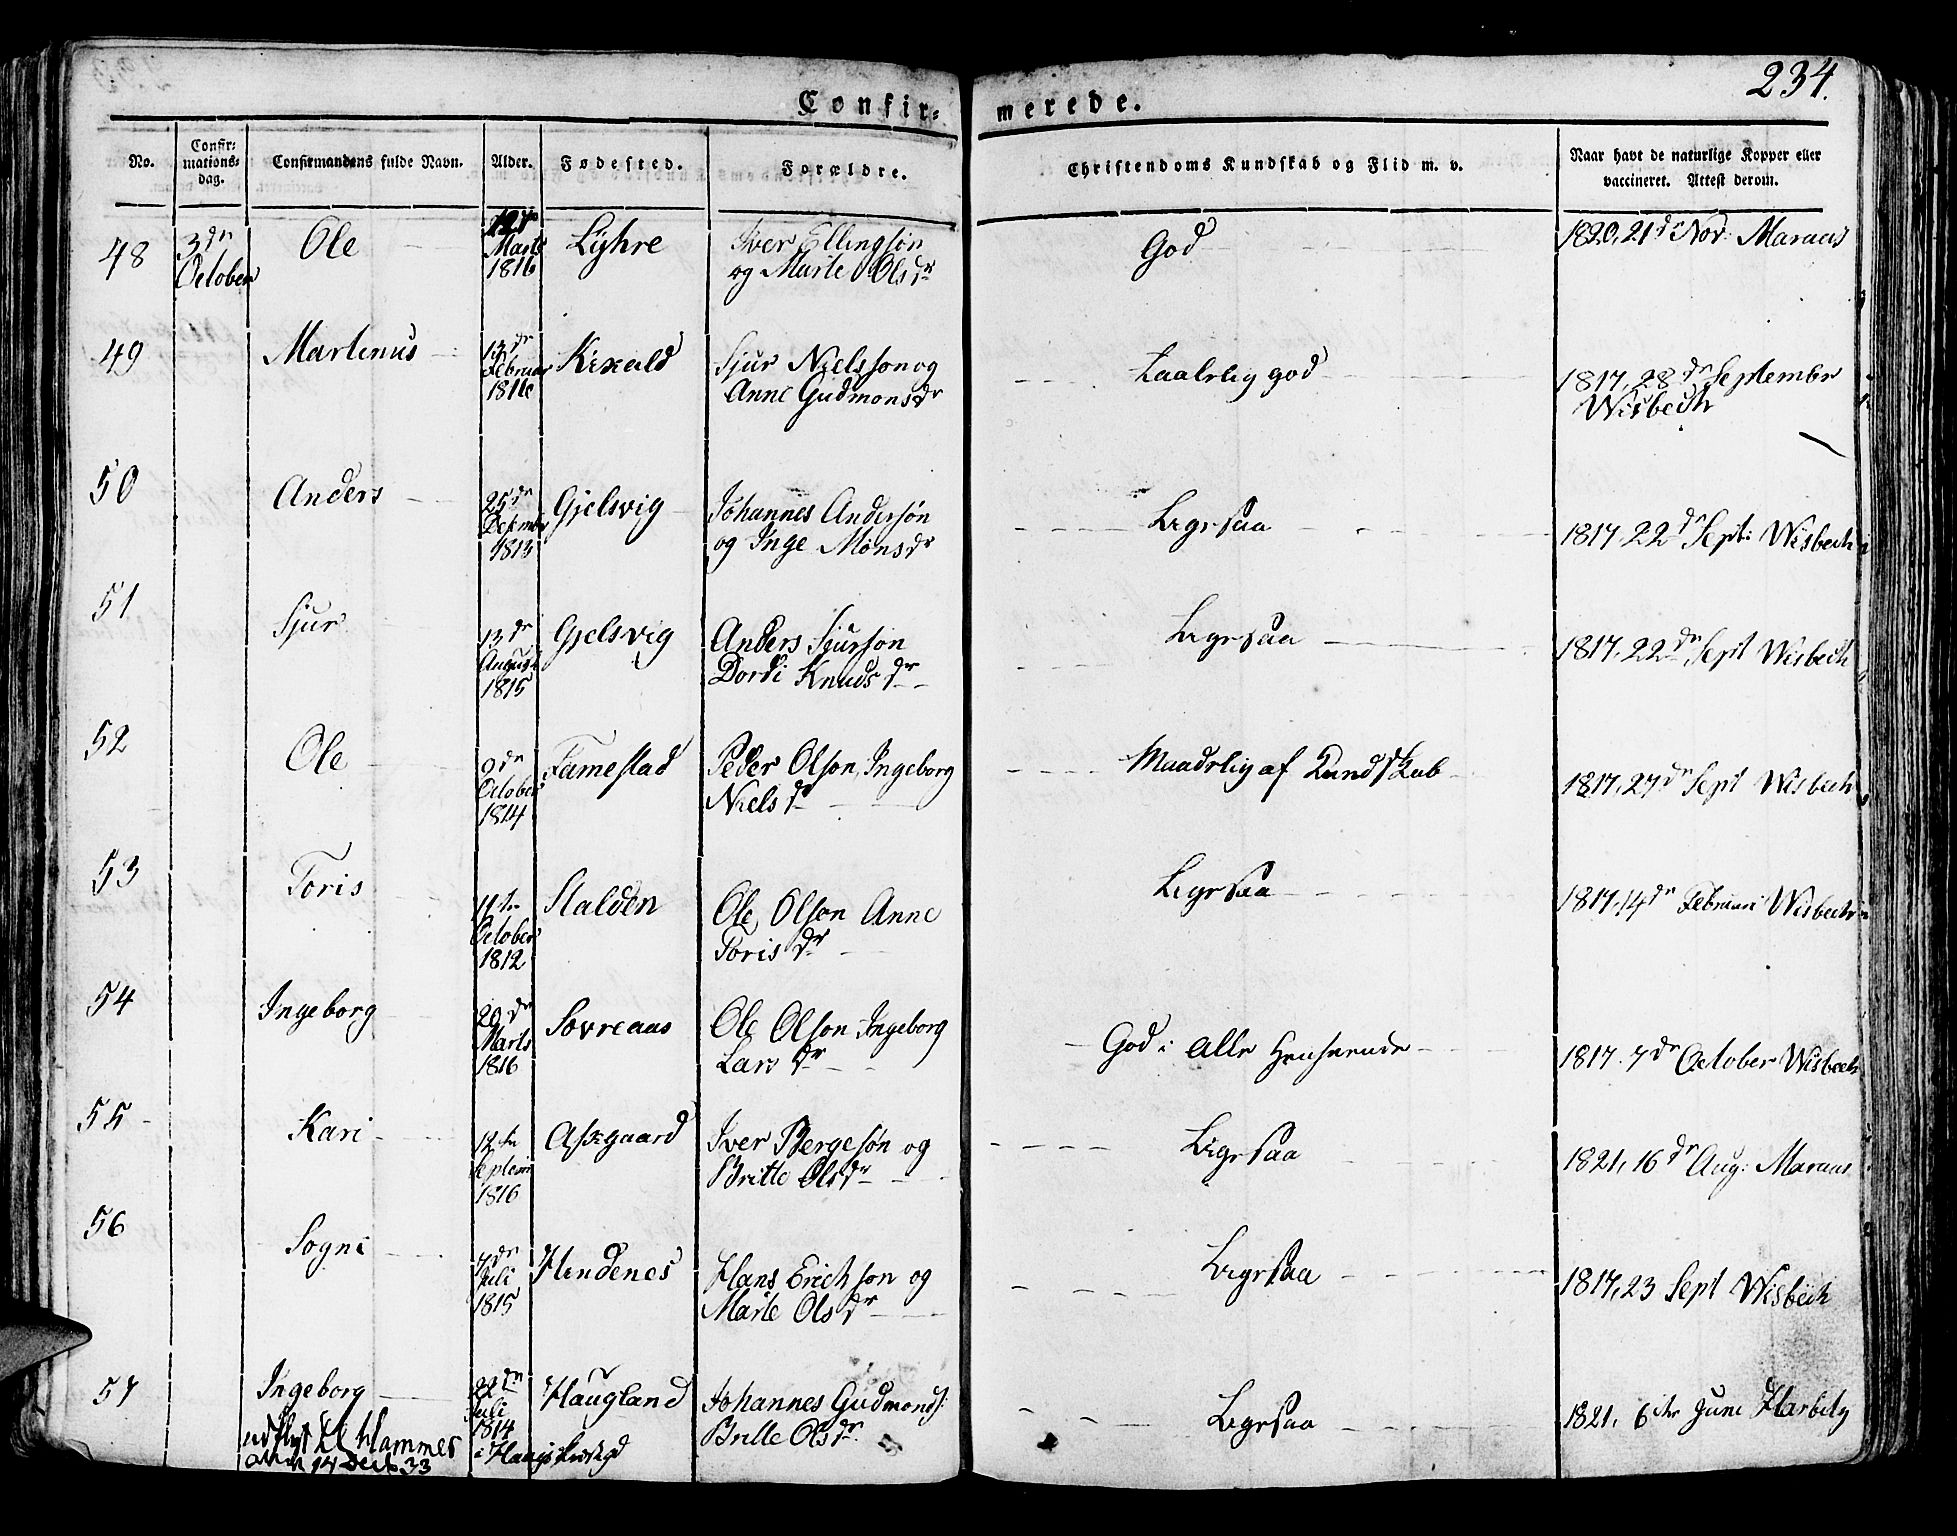 234.
Confir= merede.
No. Confir=mations=dag. Confirmandens fulde Navn. Alder. Fødested. Forældre. Christendoms Kundskab og Flid m. v. Naar havt de naturlige Kopper eller vaccineret. Attest derom.
48 3dn October Ole Marts 1816 Lyhre Iver Ellingsøn God 1820, 21de Nov: Maraas
og Marte Olsdr
49 Martinus 13de Februar 1816 Kixald Sjur Nielsson og Taalelig god 1817, 28de September
Anne Gudmonsdr Wisbech
50 Anders 25de Desember 1813 Gjelsvig Johannes Andersøn Ligesaa 1817 22de Sept: Wisbech
og Inge Monsdr
51 Sjur 13de August 1815 Gjelsvig Anders Sjurson Ligesaa 1817, 22de Sept Wisbech
Dordi Knudsdr
52 Ole 9de October 1814 Famestad Peder Olson, Ingeborg Maadelig af Kundskab 1817, 27de Sept Wisbech
Nielsdr
53 Toris 11te October 1812 Stalden Ole Olson Anne Ligesaa 1817, 14de Februari Wisbech
Torisdr
54 Ingeborg 20de Marts 1816 Sovreaas Ole Olson Ingeborg God i alle Henseende 1817. 7de October Wisbech
Larsdr
55 Kari 12te Septem 1816 Askgaard Iver Bergesøn og Ligesaa 1821, 16de Aug: Maraas
Britte Olsdr
56 Sogni 7de Juli 1815 Hindenes Hans Erichson og Ligesaa 1817, 23 Sept Wisbech
Marte Olsdr
57 Ingeborg 22de Juli 1814 Haugland Johannes Gudmonds: Ligesaa 1821, 6te Juni Harbitz
Britte Olsdr.
udflyt til Hammer i
14 Decb 33